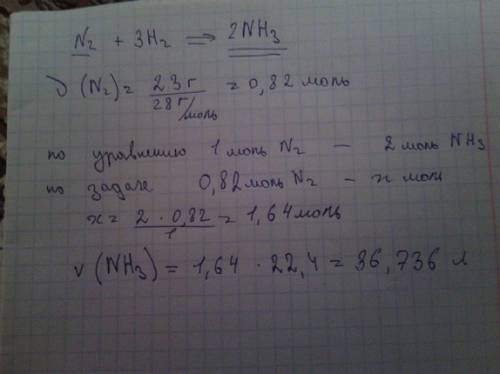 N₂ + 3H₂ ⇒ 2NH₃
ν (N₂) = 23 г / 28 г/моль = 0,82 моль
по уравнению 1 моль N₂ — 2 моль NH₃
по задаче 0,82 моль N₂ — x моль
x = 2 · 0,82 / 1 = 1,64 моль
v (NH₃) = 1,64 · 22,4 = 36,736 л